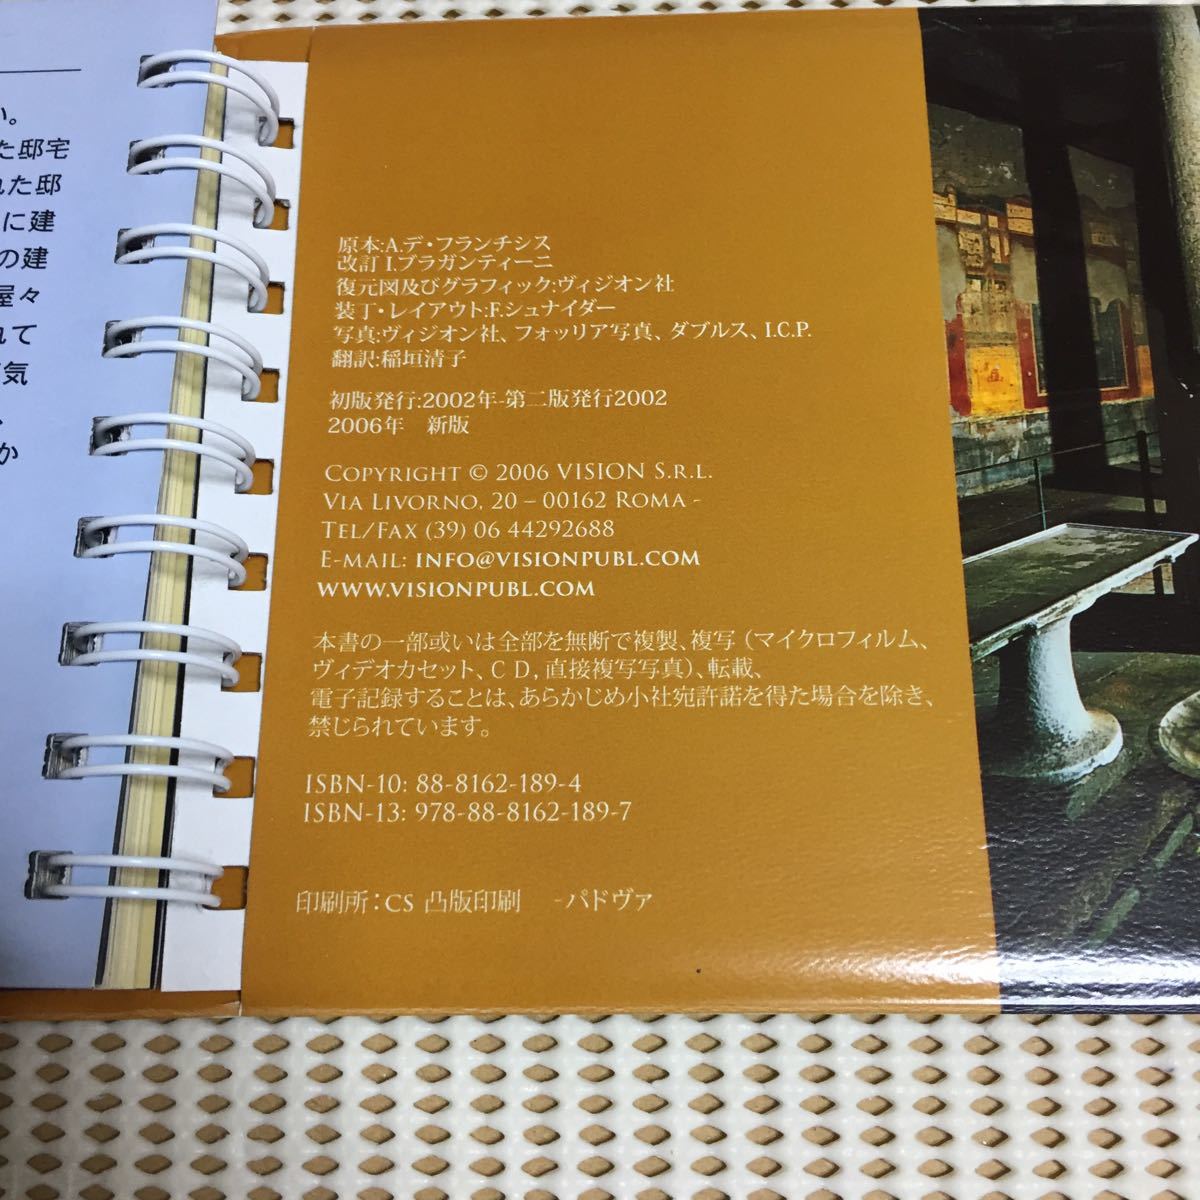 い。
た邸宅
れた邸
に建
の建
屋々
れて
気
か
原本:A.デ・フランチシス
改訂 I.ブラガンティーニ
復元図及びグラフィック:ヴィジオン社
装丁・レイアウト:F.シュナイダー
写真:ヴィジオン社、フォッリア写真、ダブルス、I.C.P.
翻訳:稲垣清子
初版発行:2002年-第二版発行2002
2006年　新版
COPYRIGHT © 2006 VISION S.R.L.
VIA LIVORNO, 20 – 00162 ROMA -
TEL/FAX (39) 06 44292688
E-MAIL: INFO@VISIONPUBL.COM
WWW.VISIONPUBL.COM
本書の一部或いは全部を無断で複製、複写（マイクロフィルム、
ヴィデオカセット、ＣＤ,直接複写写真）、転載、
電子記録することは、あらかじめ小社宛許諾を得た場合を除き、
禁じられています。
ISBN-10: 88-8162-189-4
ISBN-13: 978-88-8162-189-7
印刷所：CS 凸版印刷　-パドヴァ